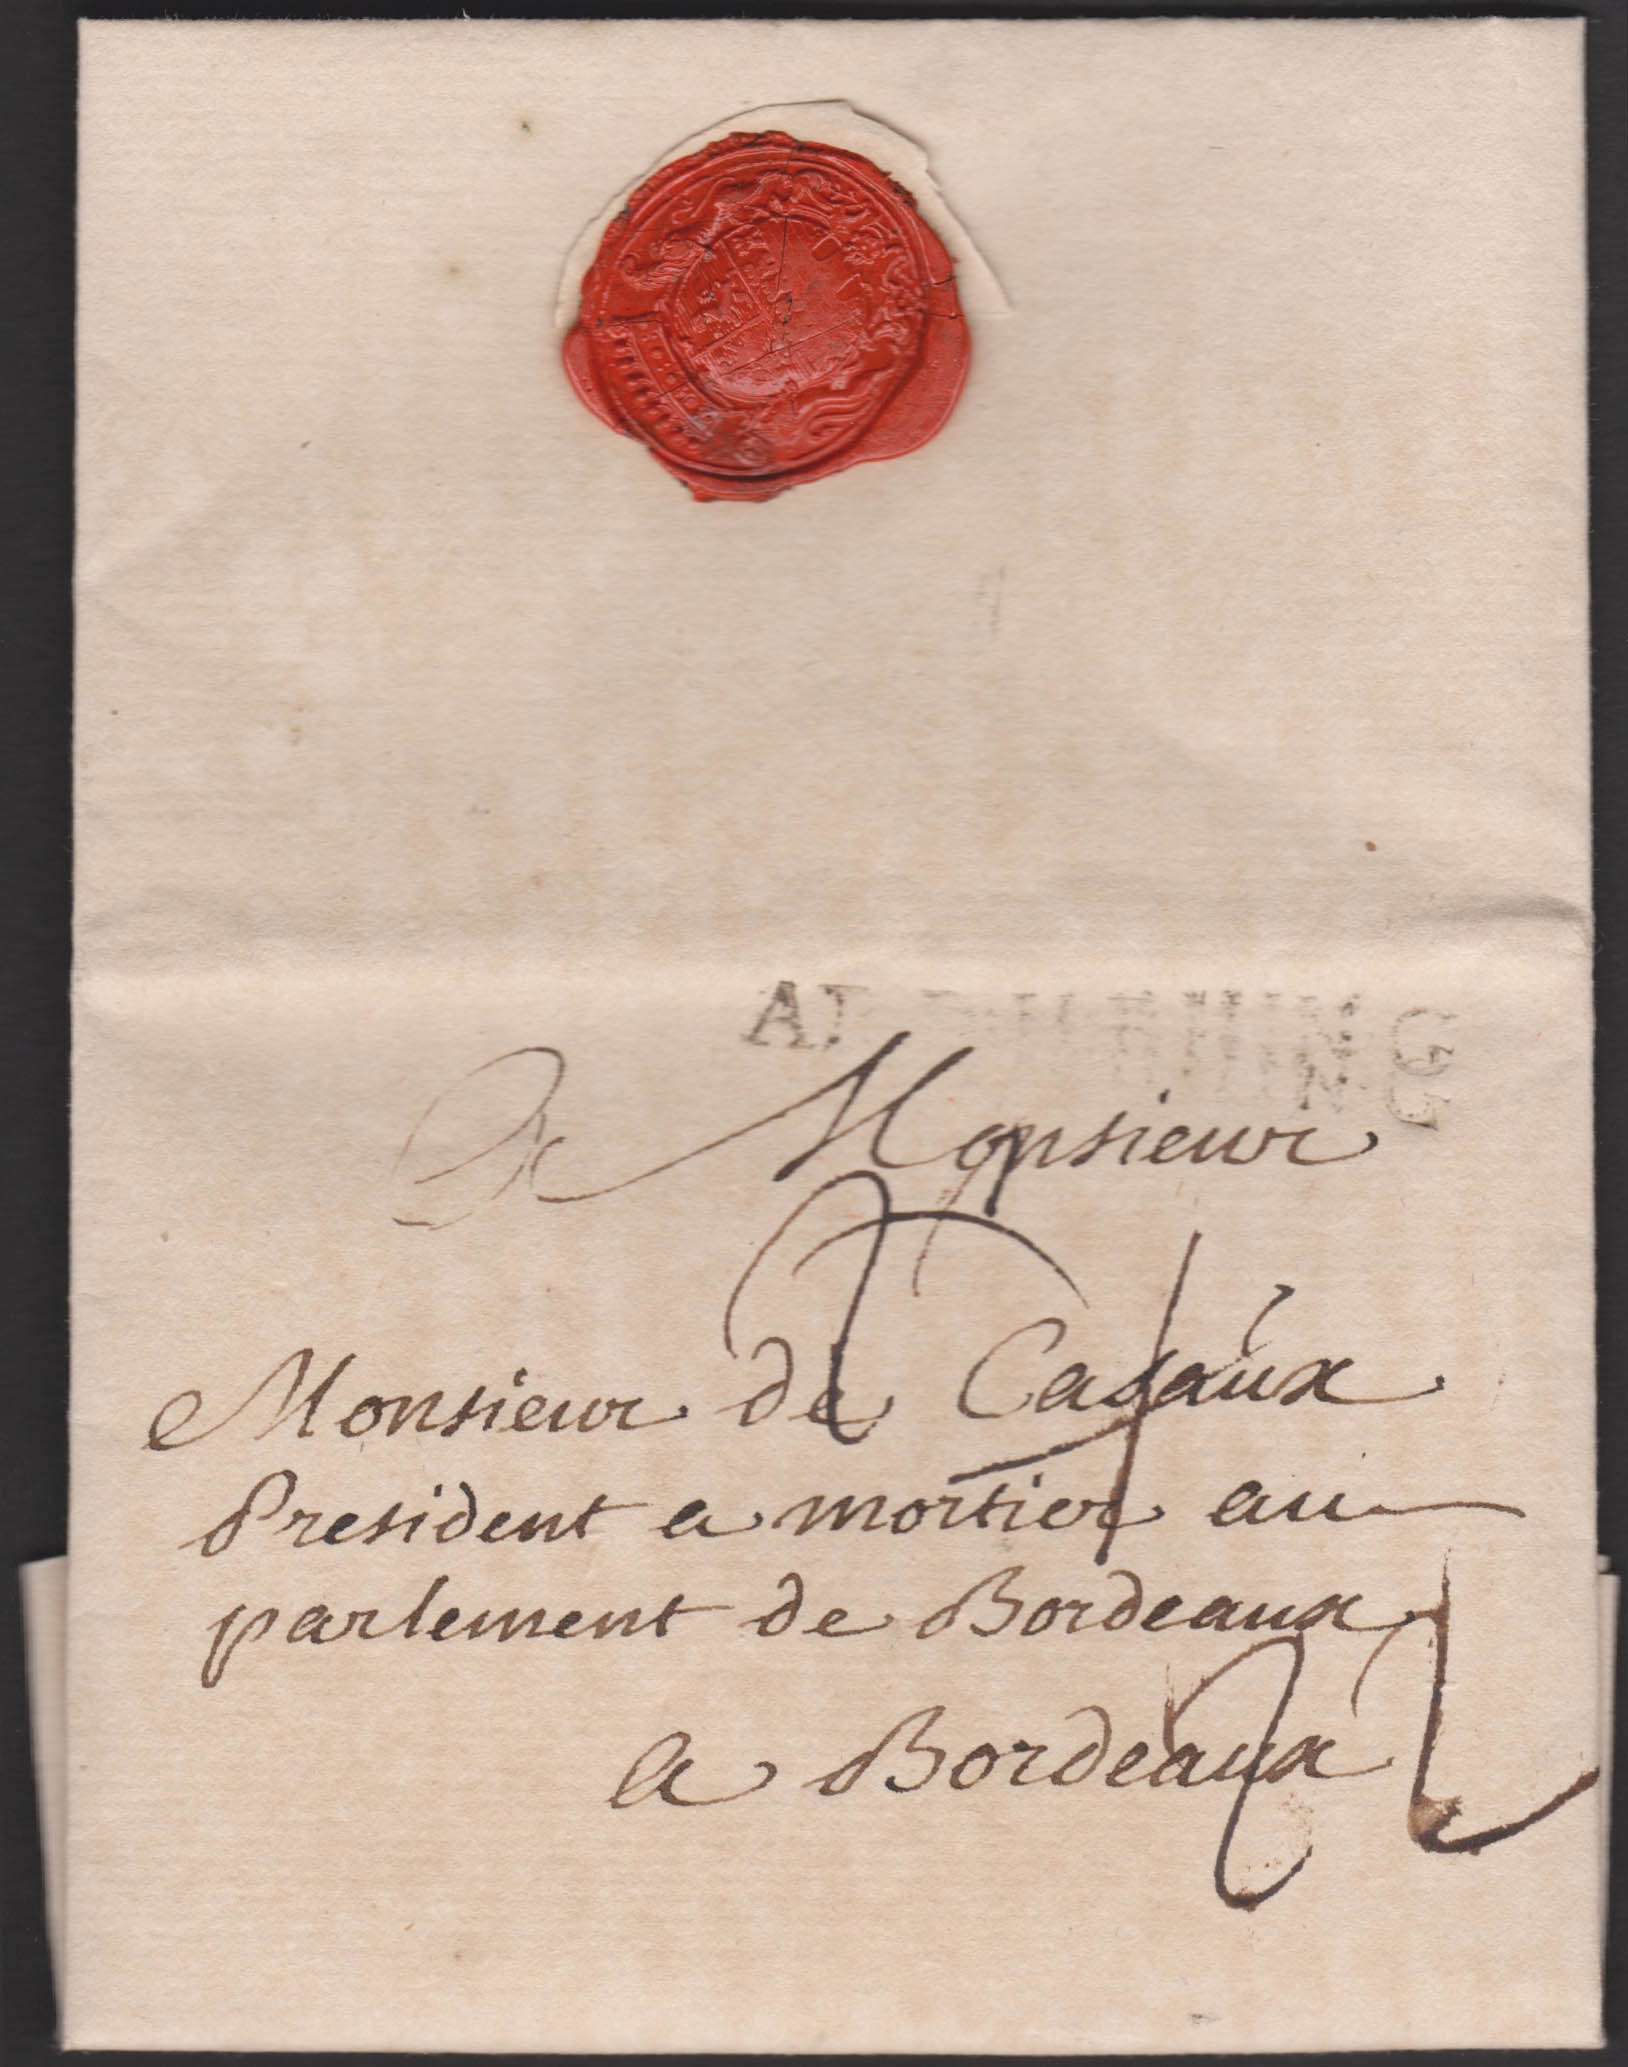 A Monsieur
Monsieur de Casaux
President a mortier au
parlement de Bordeaux
a Bordeaux